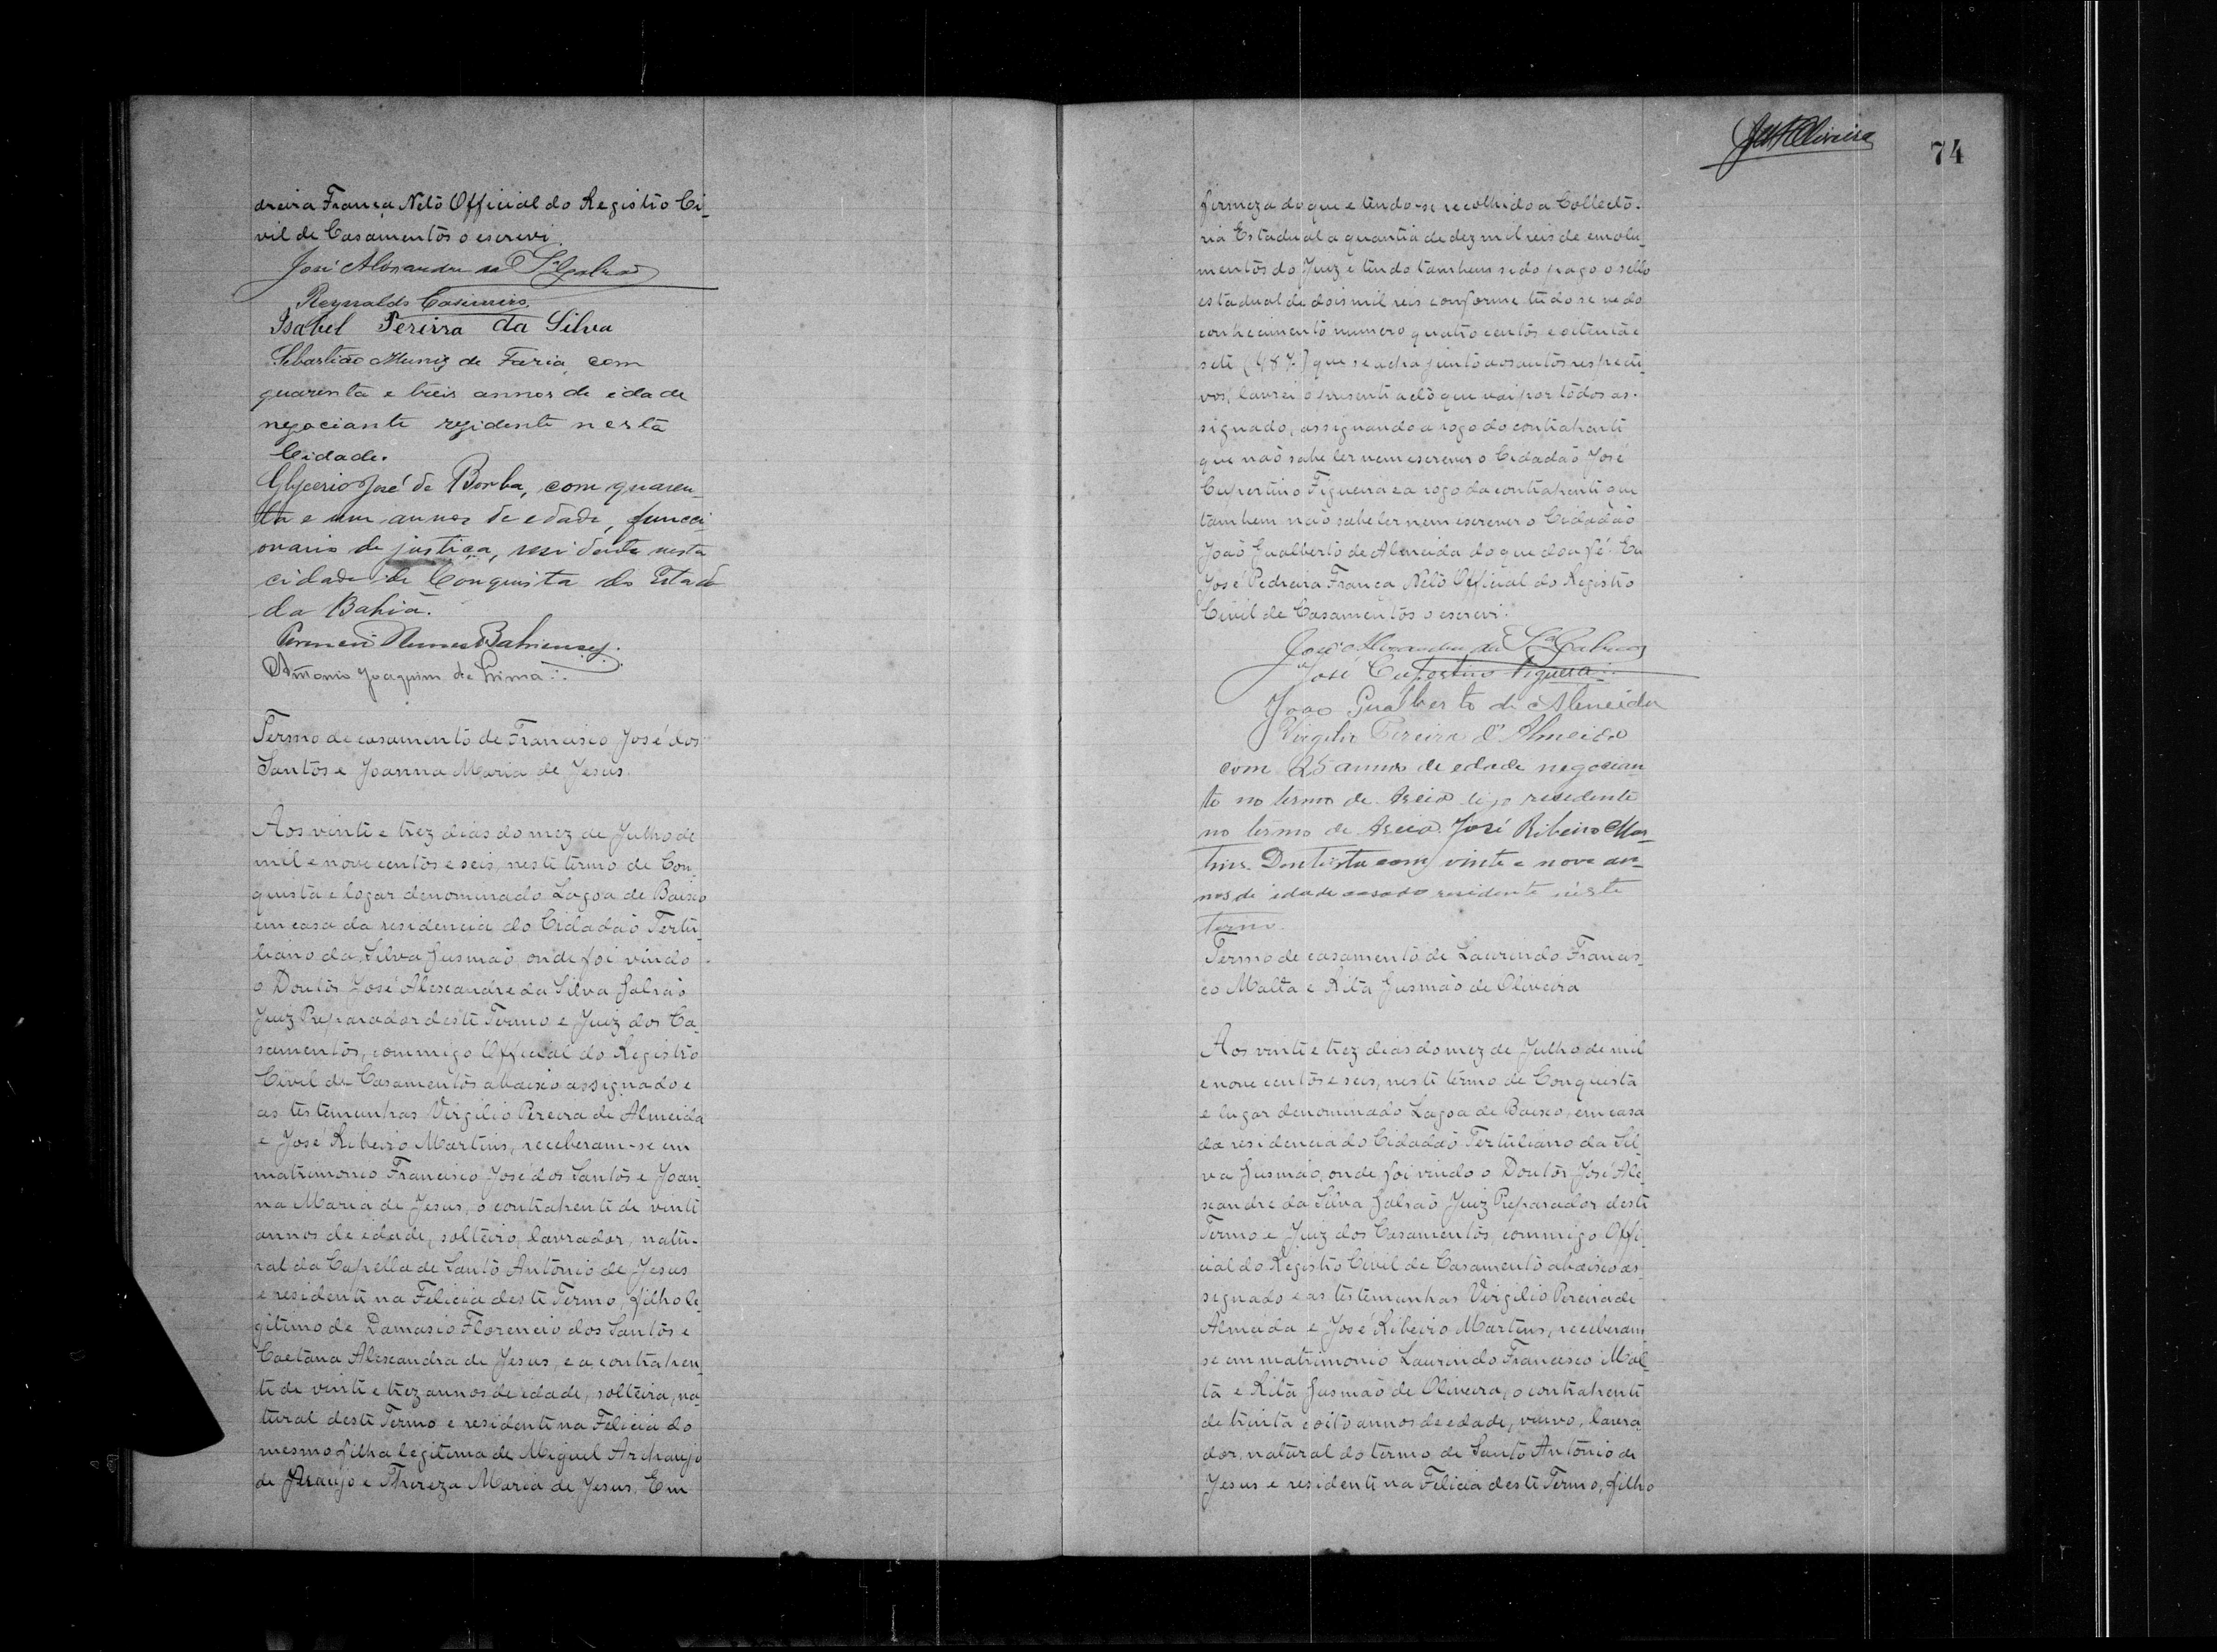 dreira França Netto Official do Registro Ci-
vil de Casamentos o escrevi.
José Alexandre da Sª Galrão
Reynaldo Casimiro
Isabel Pereira da Silva
Sebastião Muniz de Faria, com
quarenta e treis annos de idade
negociante rezidente nesta
Cidade.
Glycerio José de Borba, com quaren-
ta e um annos de edade, funcci-
onario de justiça, residente nesta
cidade de Conquista do Estado
da Bahia.
Nunes Bahiense
Antonio Joaquim de Lima
Termo de casamento de Francisco José dos
Santos e Joanna Maria de Jesus.
Aos vinte e trez dias do mez de Julho de
mil e nove centos e seis, neste termo de Con-
quista e logar denominado Lagoa de Baixo
em casa da residencia do Cidadaõ Tertu-
liano da Silva Gusmaõ, onde foi vindo
o Doutor José Alexandre da Silva Galraõ
Juiz Preparador deste Termo e Juiz dos Ca-
samentos, commigo Official do Registro
Civil de Casamentos abaixo assignado e
as testemunhas Virgilio Pereira de Almeida
e José Ribeiro Martins, receberam-se em
matrimonio Francisco José dos Santos e Joan-
na Maria de Jesus, o contrahente de vinte
annos de edade, solteiro, lavrador, natu-
ral da Capella de Santo Antonio de Jesus
e residente na Felicia deste Termo, filho le-
gitimo de Damasio Florencio dos Santos e
Caetana Alexandra de Jesus, e a contrahen-
te de vinte e trez annos de edade, solteira, na-
tural deste Termo e residente na Felicia do
mesmo filha legitima de Miguel Archanjo
de Araujo e Thereza Maria de Jesus. Em
74
firmeza do que e tendo-se recolhido a Collecto-
ria Estadual a quantia de dez mil reis de emolu-
mentos do Juiz e tendo tambem sido pago o sello
estadual de dois mil reis conforme tudo se ve do
conhecimento numero quatro centos e oitenta e
sete (487) que se acha junto aos autos respecti-
vos, lavrei o presente acto que vai por todos as-
signado, assignando a rogo do contrahente
que naõ sabe ler nem escrever o Cidadaõ José
Cupertino Figueira e a rogo da contrahente que
tambem naõ sabe ler nem escrever o Cidadaõ
Joaõ Gualberto de Almeida do que dou fé. Eu
José Pedreira França Netto Official do Registro
Civil de Casamentos o escrevi.
José Alexandre da Sª Galrão
José Cupertino Figueira
Joao Gualberto de Almeida
Virgilio Pereira d'Almeida
com 25 annos de edade negocian-
te no termo de Areia digo residente
no termo de Areia. José Ribeiro Mar-
tins. Dentista com vinte e nove an-
nos de idade casado residente néste
termo.
Termo de casamento de Laurindo Francis-
co Malta e Rita Gusmaõ de Oliveira
Aos vinte e trez dias do mez de Julho de mil
e nove centos e seis, neste termo de Conquista
e lugar denominado Lagoa de Baixo, em casa
da residencia do Cidadaõ Tertuliano da Sil-
va Gusmaõ, onde foi vindo o Doutor José Ale-
xandre da Silva Galraõ Juiz Preparador deste
Termo e Juiz dos Casamentos, commigo Offi-
cial do Registro Civil de Casamento abaixo as-
segnado e as testemunhas Virgilio Pereira de
Almeida e José Ribeiro Martins, receberam
se em matrimonio Laurindo Francisco Mal-
ta e Rita Gusmaõ de Oliveira, o contrahente
de trinta e oito annos de edade, viuvo, lavra-
dor, natural do termo de Santo Antonio de
Jesus e residente na Felicia deste Termo, filho